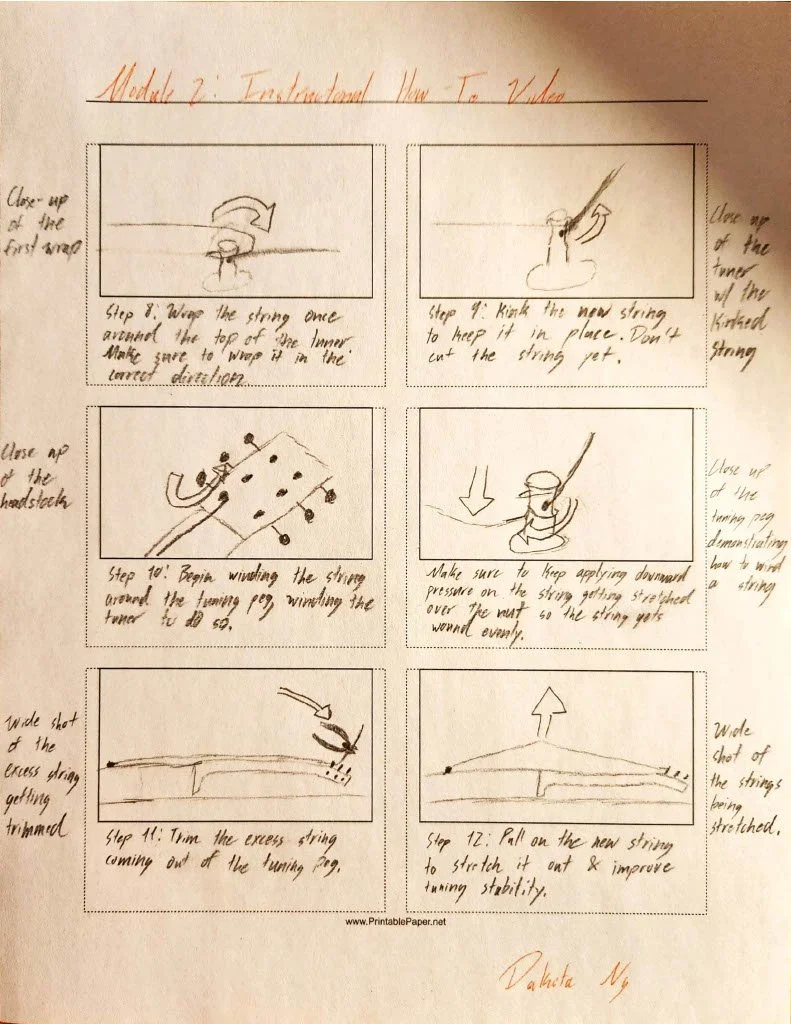 Module 2: Instructional How-To Video
Close-up
of the
first wrap
Step 8: Wrap the string once
around the top of the tuner
Make sure to wrap it in the
correct direction.
Step 9: Kink the new string
to keep it in place. Don't
cut the string yet.
Close up
of the
tuner
w/ the
kinked
string
Close up
of the
headstock
Step 10: Begin winding the string
around the tuning peg, winding the
tuner to do so.
Make sure to keep applying downward
pressure on the string getting stretched
over the nut so the string gets
wound evenly.
Close up
of the
tuning peg
demonstrating
how to wind
a string
Wide shot
of the
excess string
getting
trimmed
Step 11: Trim the excess string
coming out of the tuning peg.
Step 12: Pull on the new string
to stretch it out & improve
tuning stability.
Wide
shot of
the strings
being
stretched.
www.PrintablePaper.net
Dakota Ng